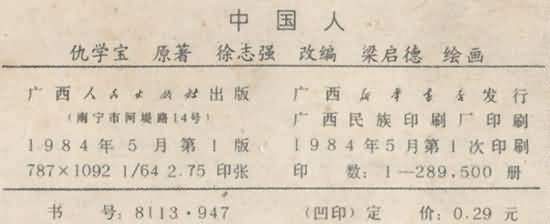 中国人
仇学宝 原著 徐志强 改编 梁启德 绘画
广西人民出版社出版
(南宁市河堤路14号)
1984年5月第1版
787×1092 1/64 2.75 印张
广西新华书店发行
广西民族印刷厂印刷
1984年5月第1次印刷
印 数:1—289,500 册
书 号:8113·947 (凹印)定 价:0.29 元